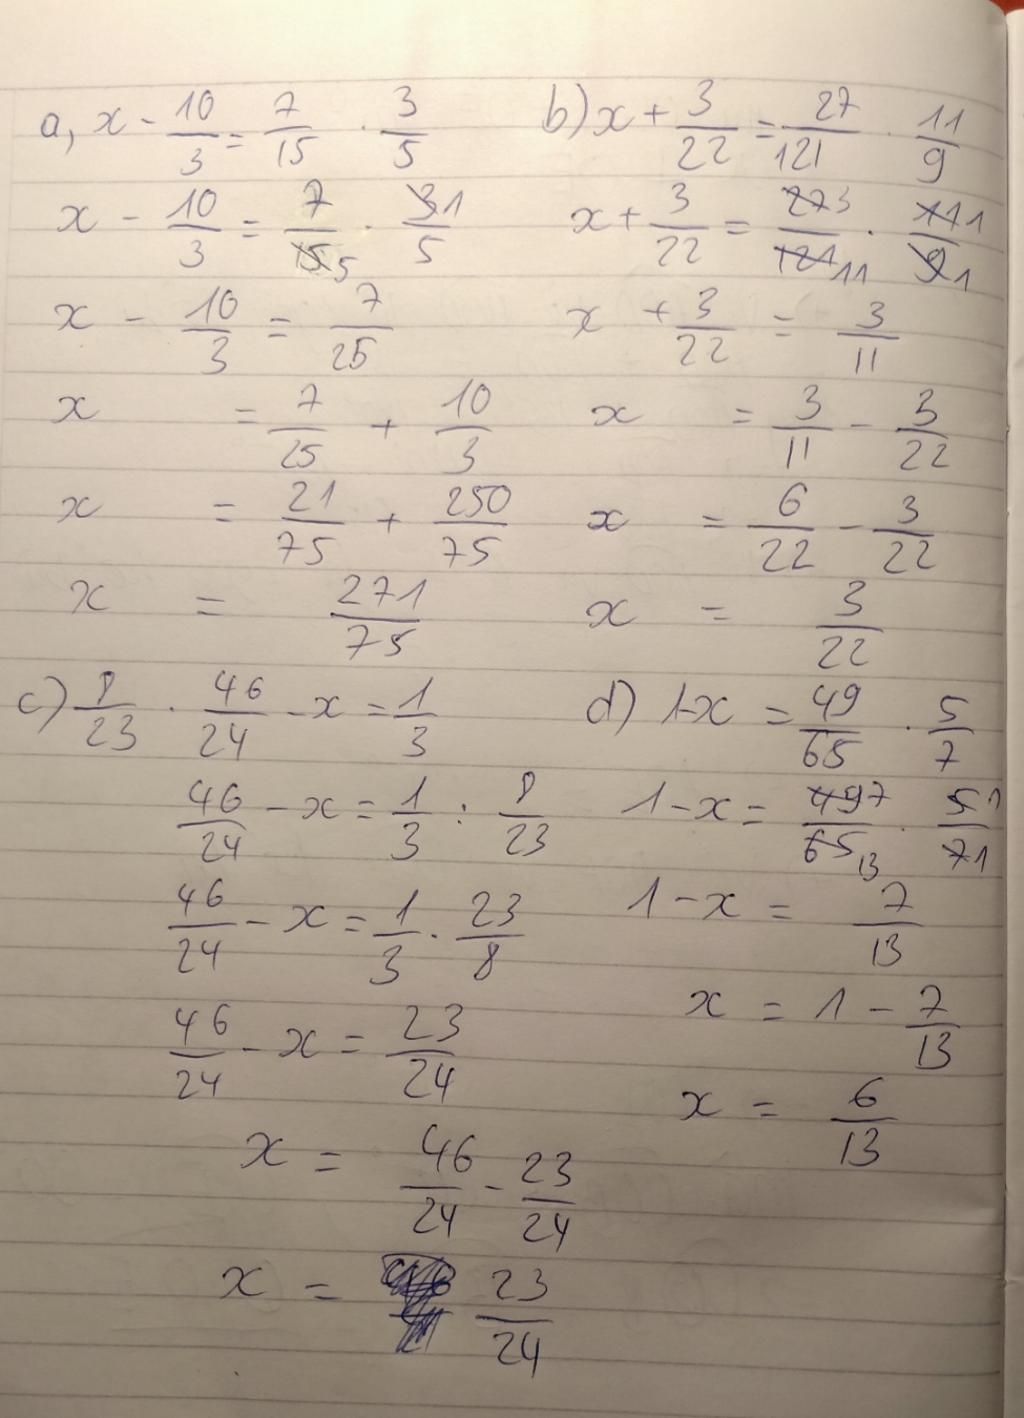 a, x - 10/3 = 7/15 · 3/5
x - 10/3 = 7/15 5 · 3 1/5
x - 10/3 = 7/25
x = 7/25 + 10/3
x = 21/75 + 250/75
x = 271/75
b) x + 3/22 = 27/121 · 11/9
x + 3/22 = 27 3/121 11 · 11 1/9 1
x + 3/22 = 3/11
x = 3/11 - 3/22
x = 6/22 - 3/22
x = 3/22
c) 8/23 · 46/24 - x = 1/3
46/24 - x = 1/3 : 8/23
46/24 - x = 1/3 · 23/8
46/24 - x = 23/24
x = 46/24 - 23/24
x = 23/24
d) 1-x = 49/65 · 5/7
1-x = 49 7/65 13 · 5 1/7 1
1-x = 7/13
x = 1 - 7/13
x = 6/13